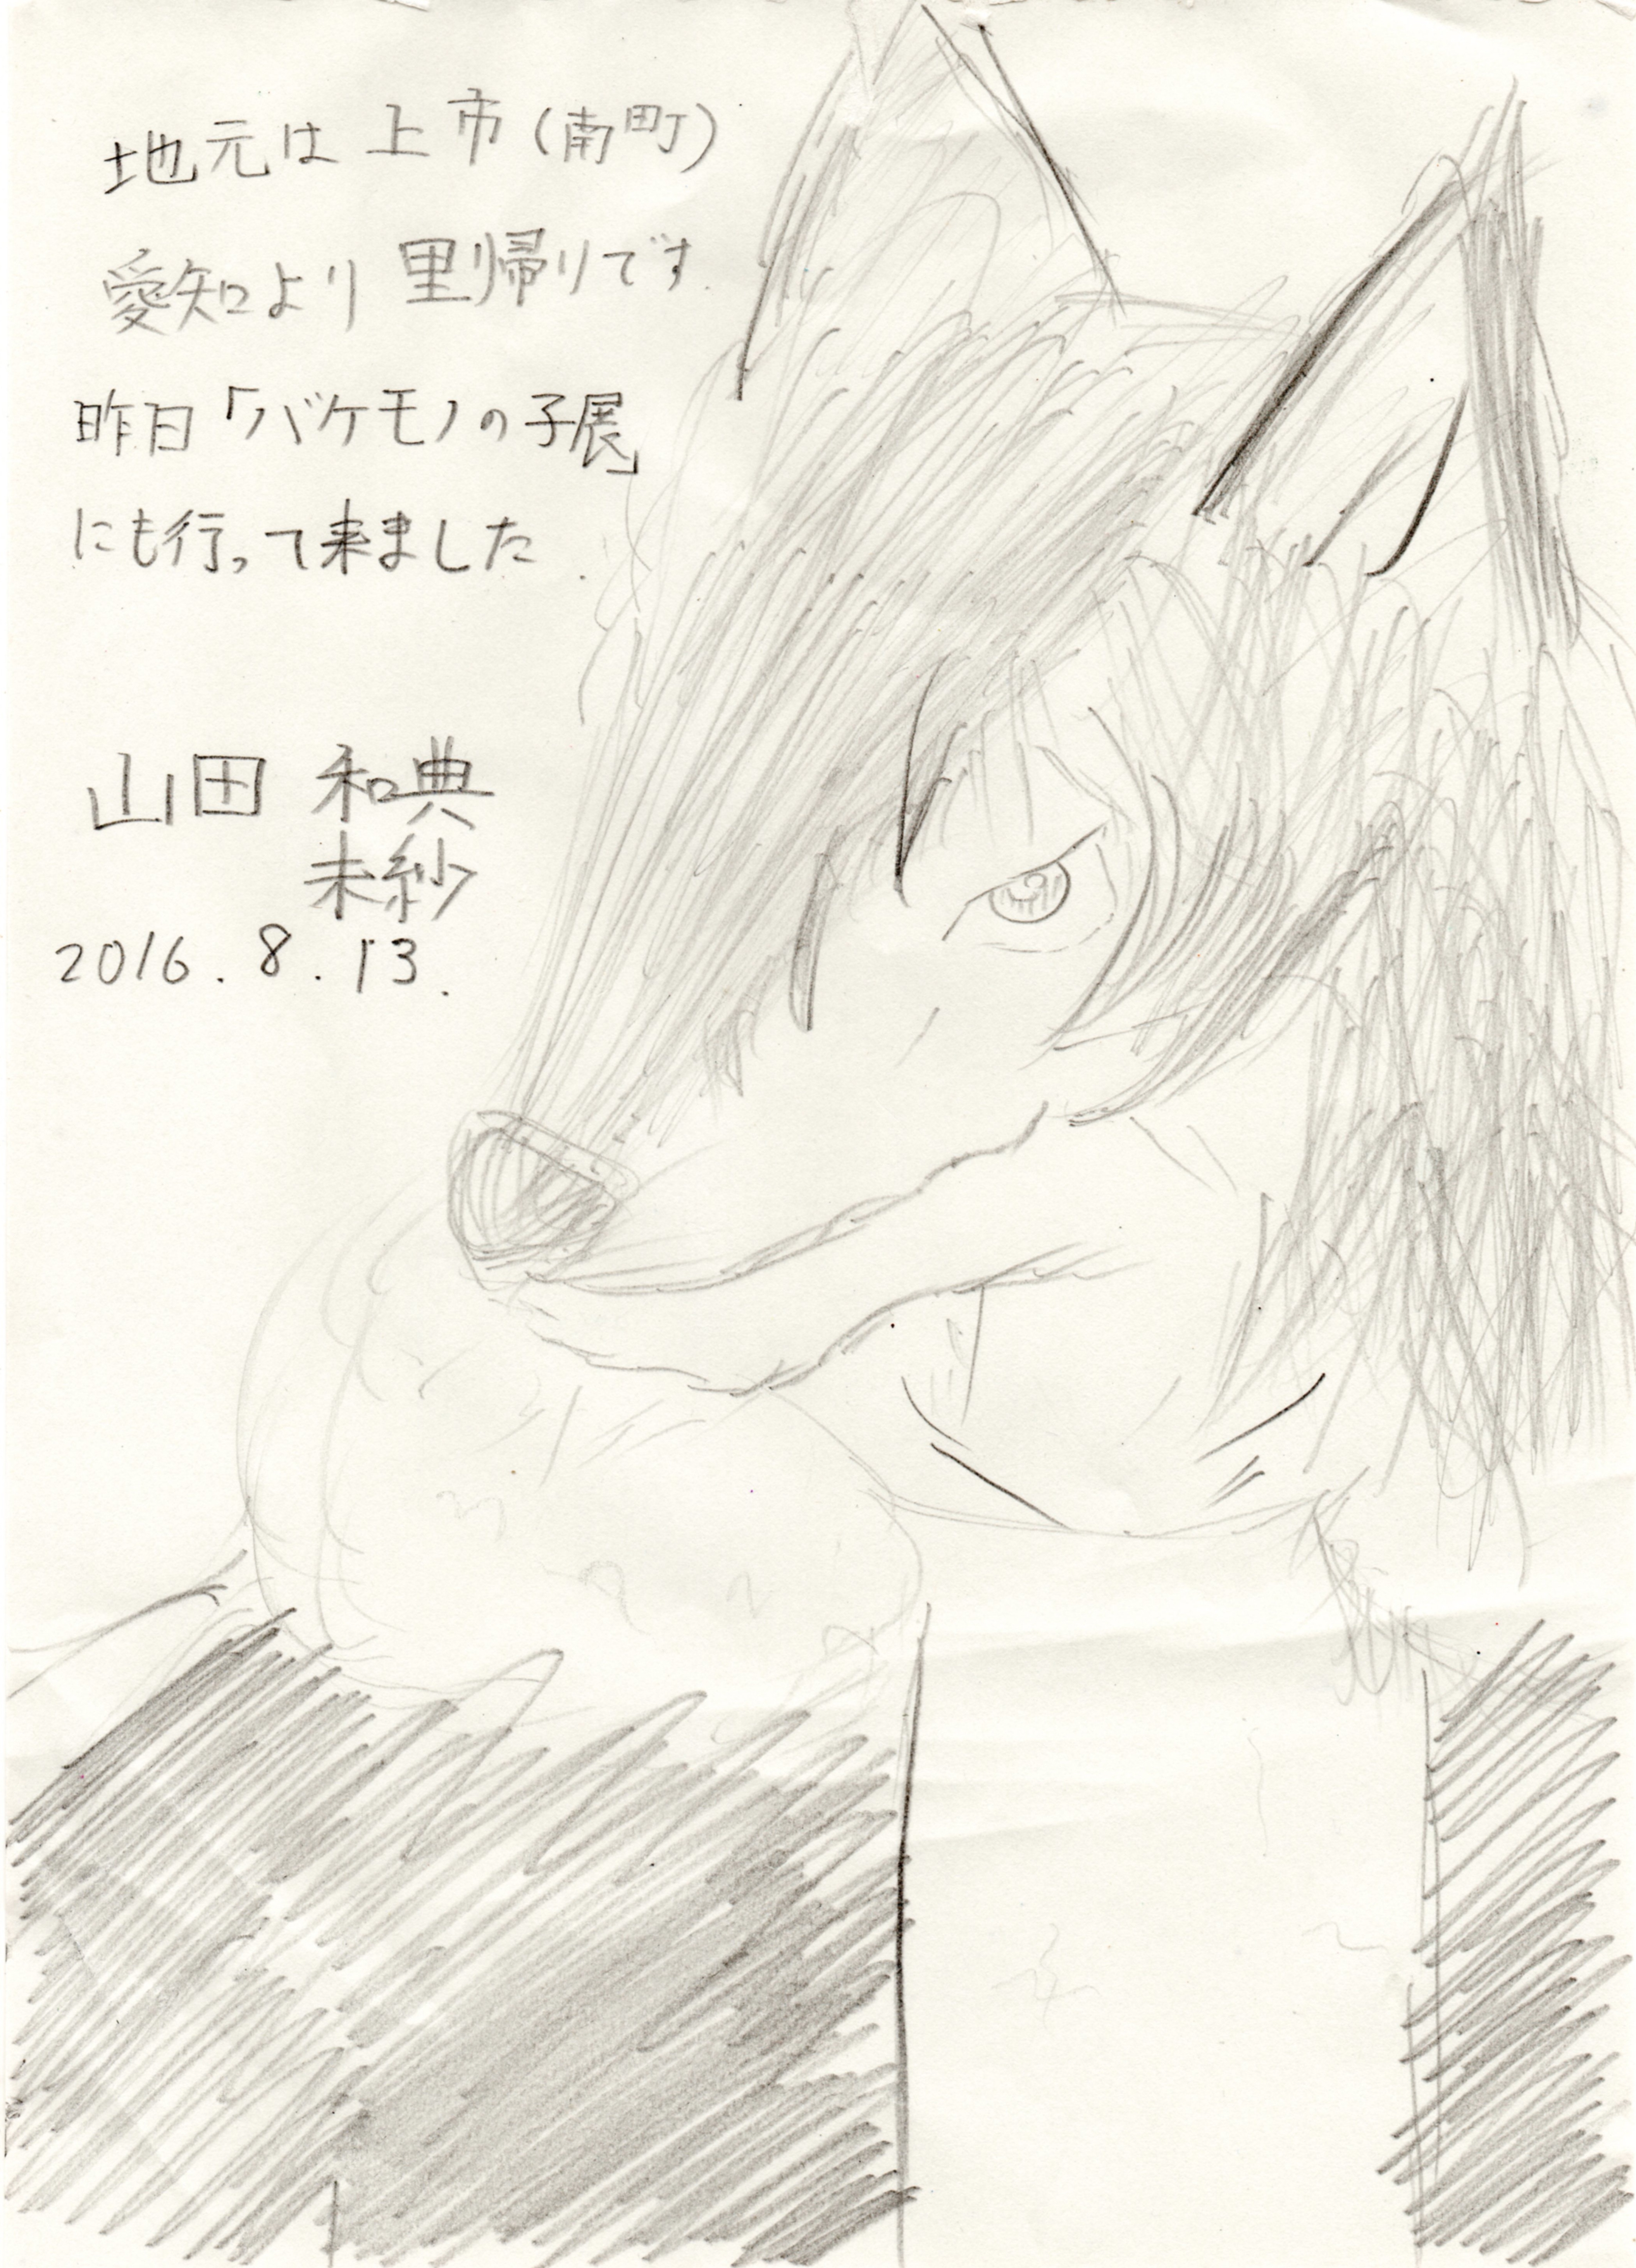 地元は 上市(南町)
愛知より 里帰りです.
昨日「バケモノの子展」
にも行って来ました.
山田 和典
未紗
2016.8.13.